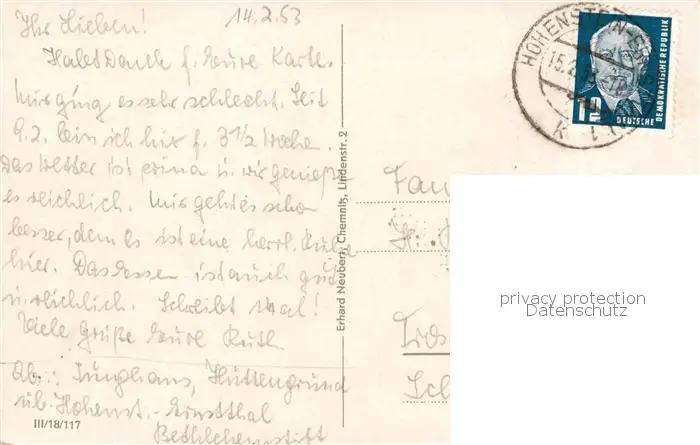 14.2.53
Ihr Lieben!
Habt Dank f. Eure Karte.
Mir ging es sehr schlecht. Seit
9.2. bin ich hier f. 3 1/2 Woche.
Das Wetter ist prima u. wir genieße
es reichlich. Mir geht es schon
besser, denn es ist eine herrl. Ruhe
hier. Das Essen ist auch gut
u. reichlich. Schreibt mal!
Viele Grüße Eure Ruth
Ab.: Junghans, Hüttengrund
üb. Hohenst.-Ernstthal
Bethlehemstift
III/18/117
Erhard Neubert, Chemnitz, Lindenstr. 2
HOHENSTEIN-
15.2.
DEUTSCHE
DEMOKRATISCHE REPUBLIK
Fam
H.
Sch
privacy protection
Datenschutz